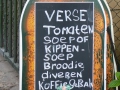 VERSE
Tomaten
SOEP OF
KIPPEN-
SOEP
Broodje
diveren
Koffie GEBAK